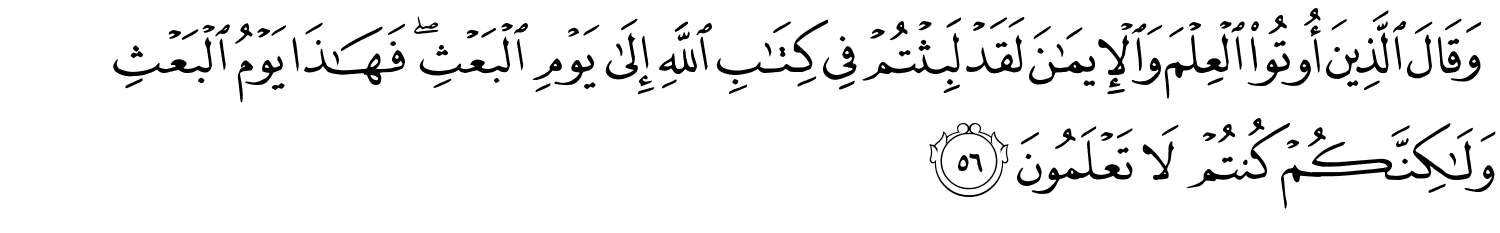 وَقَالَ ٱلَّذِينَ أُوتُوا۟ ٱلْعِلْمَ وَٱلْإِيمَـٰنَ لَقَدْ لَبِثْتُمْ فِى كِتَـٰبِ ٱللَّهِ إِلَىٰ يَوْمِ ٱلْبَعْثِ ۖ فَهَـٰذَا يَوْمُ ٱلْبَعْثِ
وَلَـٰكِنَّكُمْ كُنتُمْ لَا تَعْلَمُونَ ٥٦